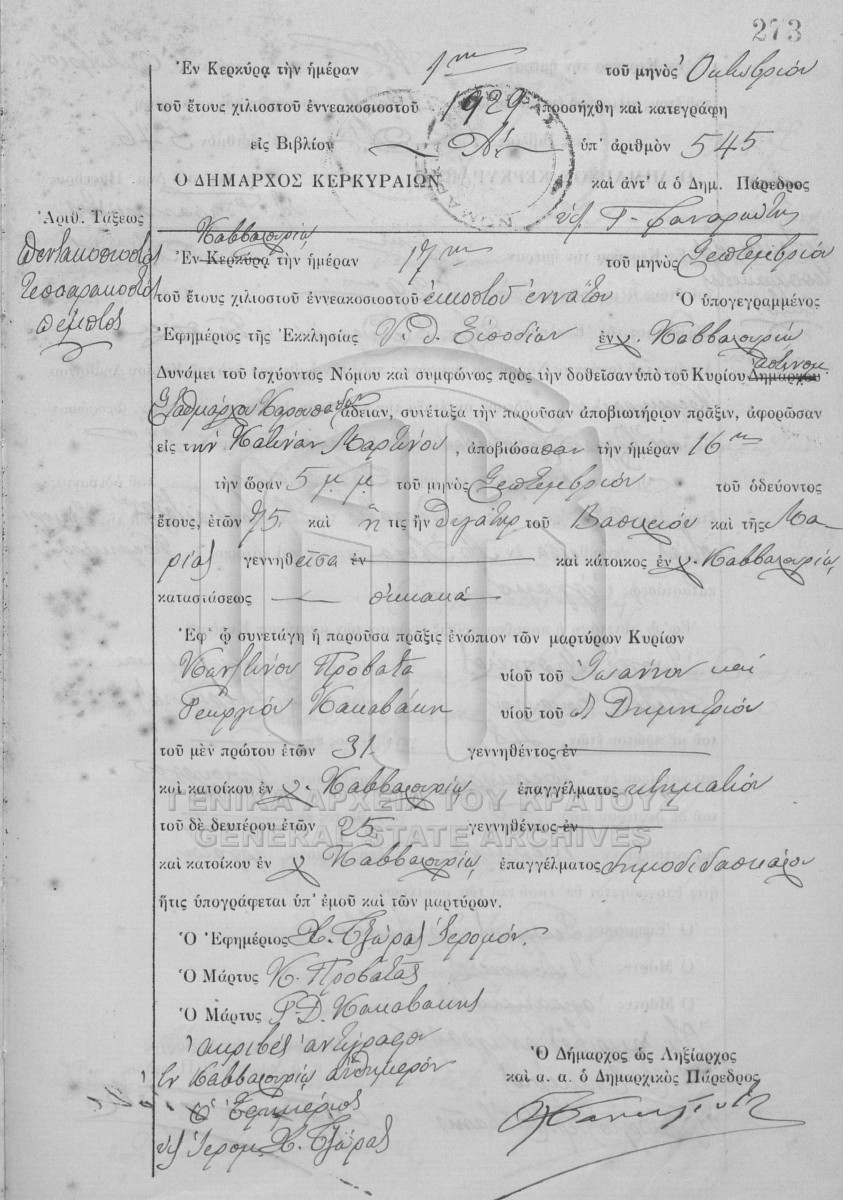 273
Ἐν Κερκύρᾳ τὴν ἡμέραν 1ην τοῦ μηνὸς Ὀκτωβρίου
τοῦ ἔτους χιλιοστοῦ ἐννεακοσιοστοῦ 1929 προσήχθη καὶ κατεγράφη
εἰς Βιβλίον Α΄. ὑπ' ἀριθμὸν 545
Ο ΔΗΜΑΡΧΟΣ ΚΕΡΚΥΡΑΙΩΝ καὶ ἀντ' α ὁ Δημ. Πάρεδρος
Ἀριθ. Τάξεως
πεντακοσιοστὸς
τεσσαρακοστὸς
πέμπτος
Καββαλουρίᾳ
Ἐν Κερκύρᾳ τὴν ἡμέραν 17ην τοῦ μηνὸς Σεπτεμβρίου
τοῦ ἔτους χιλιοστοῦ ἐννεακοσιοστοῦ εἰκοστοῦ ἐννάτου Ὁ ὑπογεγραμμένος
Ἐφημέριος τῆς Ἐκκλησίας Υ. Θ. Εἰσοδίων ἐν χ. Καββαλουρίᾳ
Δυνάμει τοῦ ἰσχύοντος Νόμου καὶ συμφώνως πρὸς τὴν δοθεῖσαν ὑπὸ τοῦ Κυρίου Δημάρχου ἀστυνομ.
Σταθμάρχου Καρουσάδων ἄδειαν, συνέταξα τὴν παροῦσαν ἀποβιωτήριον πρᾶξιν, ἀφορῶσαν
εἰς τὴν Κατίναν Μαρτίνου, ἀποβιώσασαν τὴν ἡμέραν 16ην
τὴν ὥραν 5 μ.μ. τοῦ μηνὸς Σεπτεμβρίου τοῦ ὁδεύοντος
ἔτους, ἐτῶν 75 καὶ ἥ τις ἦν θυγάτηρ τοῦ Βασιλείου καὶ τῆς Μα
ρίας γεννηθεῖσα ἐν καὶ κάτοικος ἐν χ. Καββαλουρίᾳ
καταστάσεως οἰκιακά
Ἐφ' ᾧ συνετάγη ἡ παροῦσα πρᾶξις ἐνώπιον τῶν μαρτύρων Κυρίων
Κωνστ/νου Προβατᾶ υἱοῦ τοῦ Ἰωάννου καί
Γεωργίου Κακαβάκη υἱοῦ τοῦ Δημητρίου
τοῦ μὲν πρώτου ἐτῶν 31 γεννηθέντος ἐν
καὶ κατοίκου ἐν χ. Καββαλουρίᾳ ἐπαγγέλματος κτηματίου
τοῦ δὲ δευτέρου ἐτῶν 25 γεννηθέντος ἐν
καὶ κατοίκου ἐν χ Καββαλουρίᾳ ἐπαγγέλματος δημοδιδασκάλου
ἥτις ὑπογράφεται ὑπ' ἐμοῦ καὶ τῶν μαρτύρων.
Ὁ Ἐφημέριος Χ. Τζώρας Ἱερομόν.
Ὁ Μάρτυς Κ. Προβατᾶς
Ὁ Μάρτυς Γ. Δ. Κακαβάκης
ἀκριβὲς ἀντίγραφον
Ἐν Καββαλουρίᾳ αὐθημερόν
Ὁ Ἐφημέριος
Ἱερομ. Χ. Τζώρας
Ὁ Δήμαρχος ὡς Ληξίαρχος
καὶ α. α. ὁ Δημαρχικὸς Πάρεδρος
ΓΕΝΙΚΑ ΑΡΧΕΙΑ ΤΟΥ ΚΡΑΤΟΥΣ
GENERAL STATE ARCHIVES